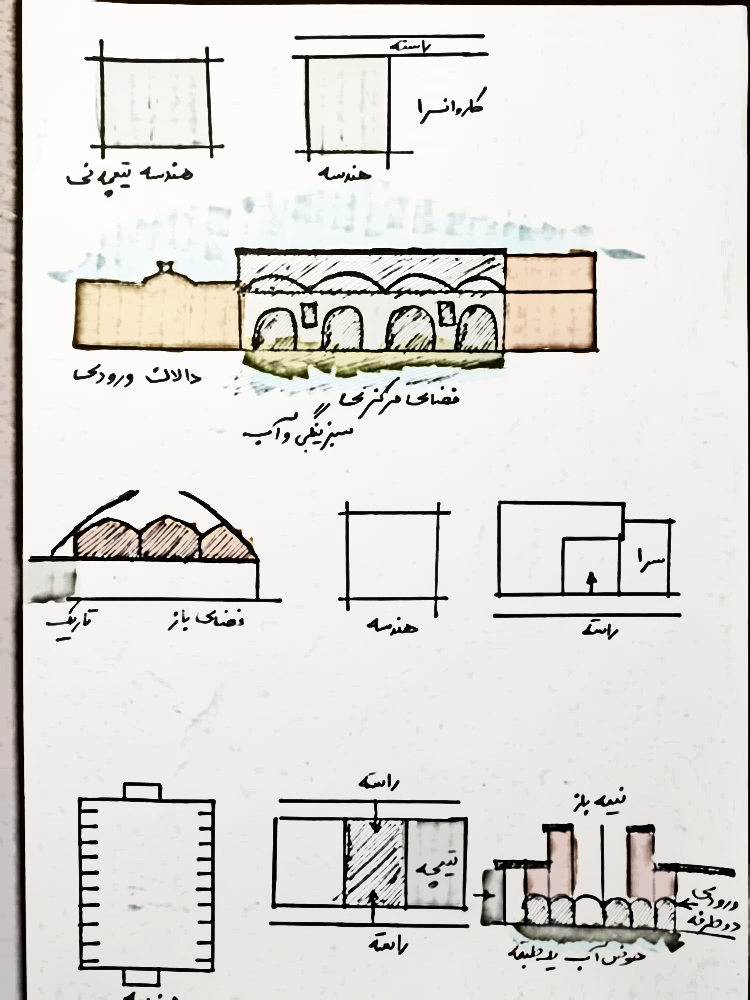 راسته
کاروانسرا
هندسه تیمچه ئی
هندسه
دالان ورودی
فضای مرکزی
سبزینگی و آب
تاریک
فضای باز
هندسه
سرا
راسته
راسته
نیمه باز
تیمچه
ورودی
دو طرفه
راسته
حوض آب
هندسه